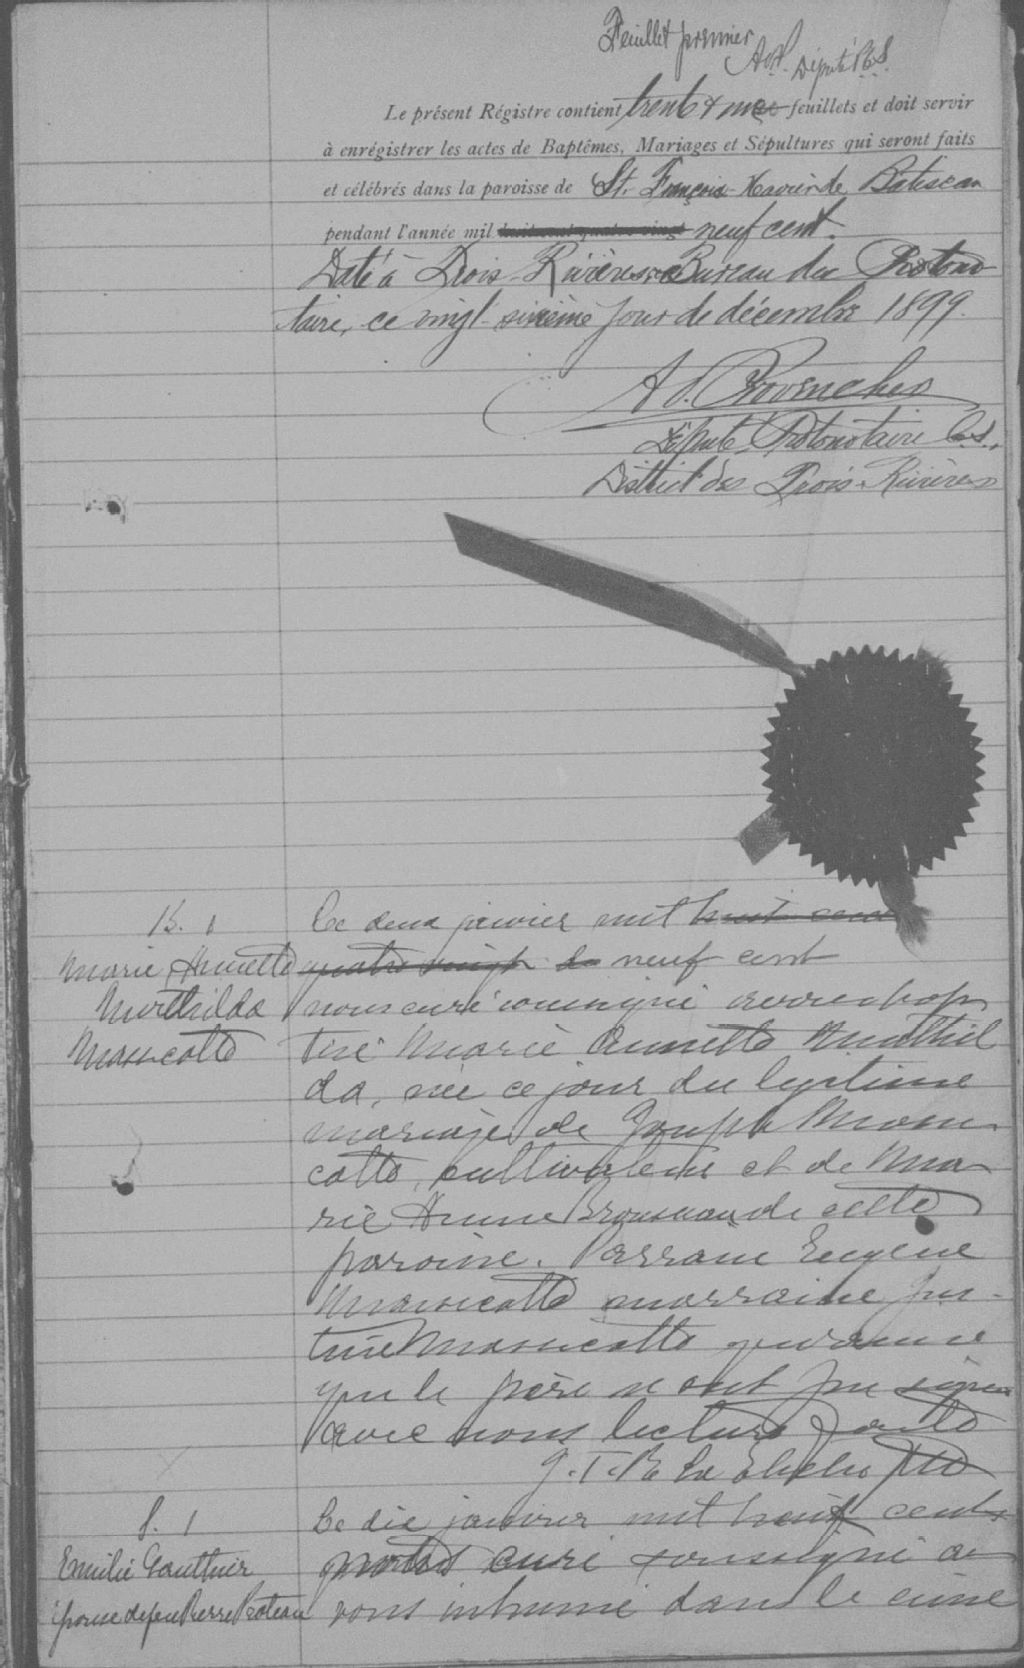 Feuillet premier
Député P.C.S.
Le présent Régistre contient trente & une feuillets et doit servir
à enrégistrer les actes de Baptêmes, Mariages et Sépultures qui seront faits
et célébrés dans la paroisse de St. François-Xavier de Batiscan
pendant l'année mil huit cent quatre vingt neuf cent.
Daté à Trois-Rivières, Bureau du Protono-
taire, ce vingt-sixième jour de décembre 1899.
Député Protonotaire C.S.,
District des Trois-Rivières
B. 1
Marie Annette
Mathilda
Massicotte
Le deux janvier mil huit cent
quatre vingt neuf cent
nous curé soussigné avons bap
tisé Marie Annette Mathil
da, née ce jour du légitime
mariage de Joseph Massi-
cotte, cultivateur et de Ma-
rie Anne Brousseau de cette
paroisse. Parrain Eugène
Massicotte marraine Jus-
tine Massicotte qui ainsi
que le père n'ont pu signer
avec nous lecture faite
S. 1
Emilie Gauthier
épouse de feu Pierre Proteau
Le dix janvier mil neuf cent
curé soussigné a-
vons inhumé dans le cime